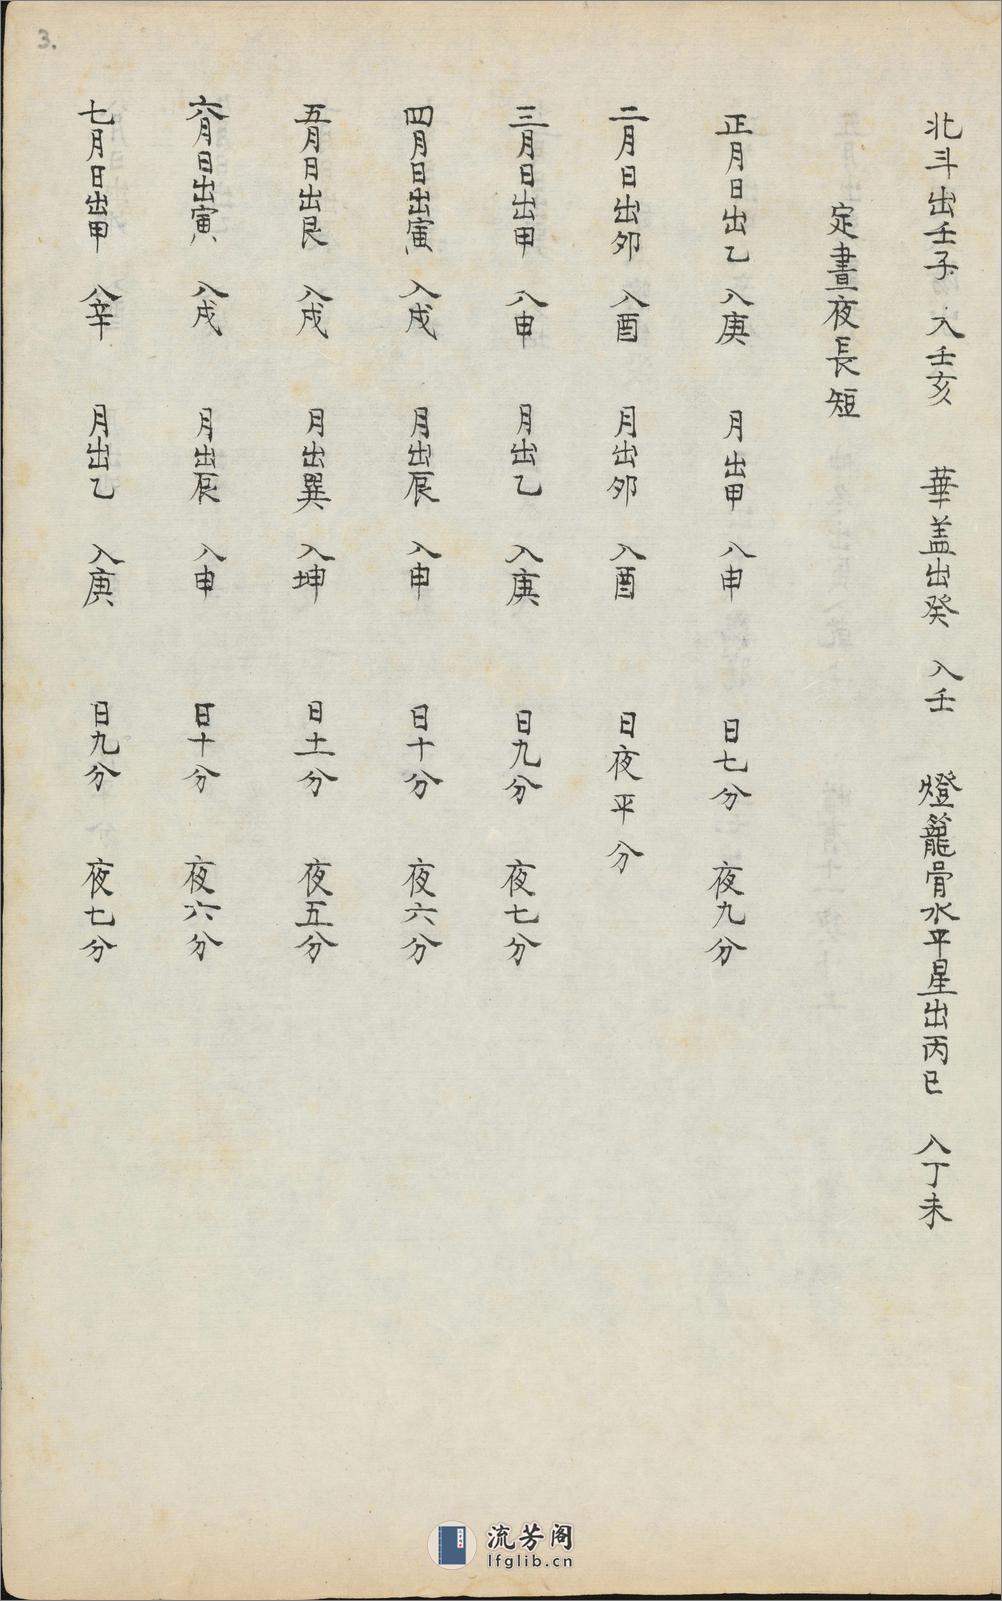 3.
北斗出壬子 入壬亥 華盖出癸 入壬 燈籠骨水平星出丙巳 入丁未
定晝夜長短
正月日出乙 入庚 月出甲 入申 日七分 夜九分
二月日出夘 入酉 月出夘 入酉 日夜平分
三月日出甲 入申 月出乙 入庚 日九分 夜七分
四月日出寅 入戍 月出辰 入申 日十分 夜六分
五月日出艮 入戍 月出巽 入坤 日十一分 夜五分
六月日出寅 入戍 月出辰 入申 日十分 夜六分
七月日出甲 入辛 月出乙 入庚 日九分 夜七分
流芳阁
lfglib.cn